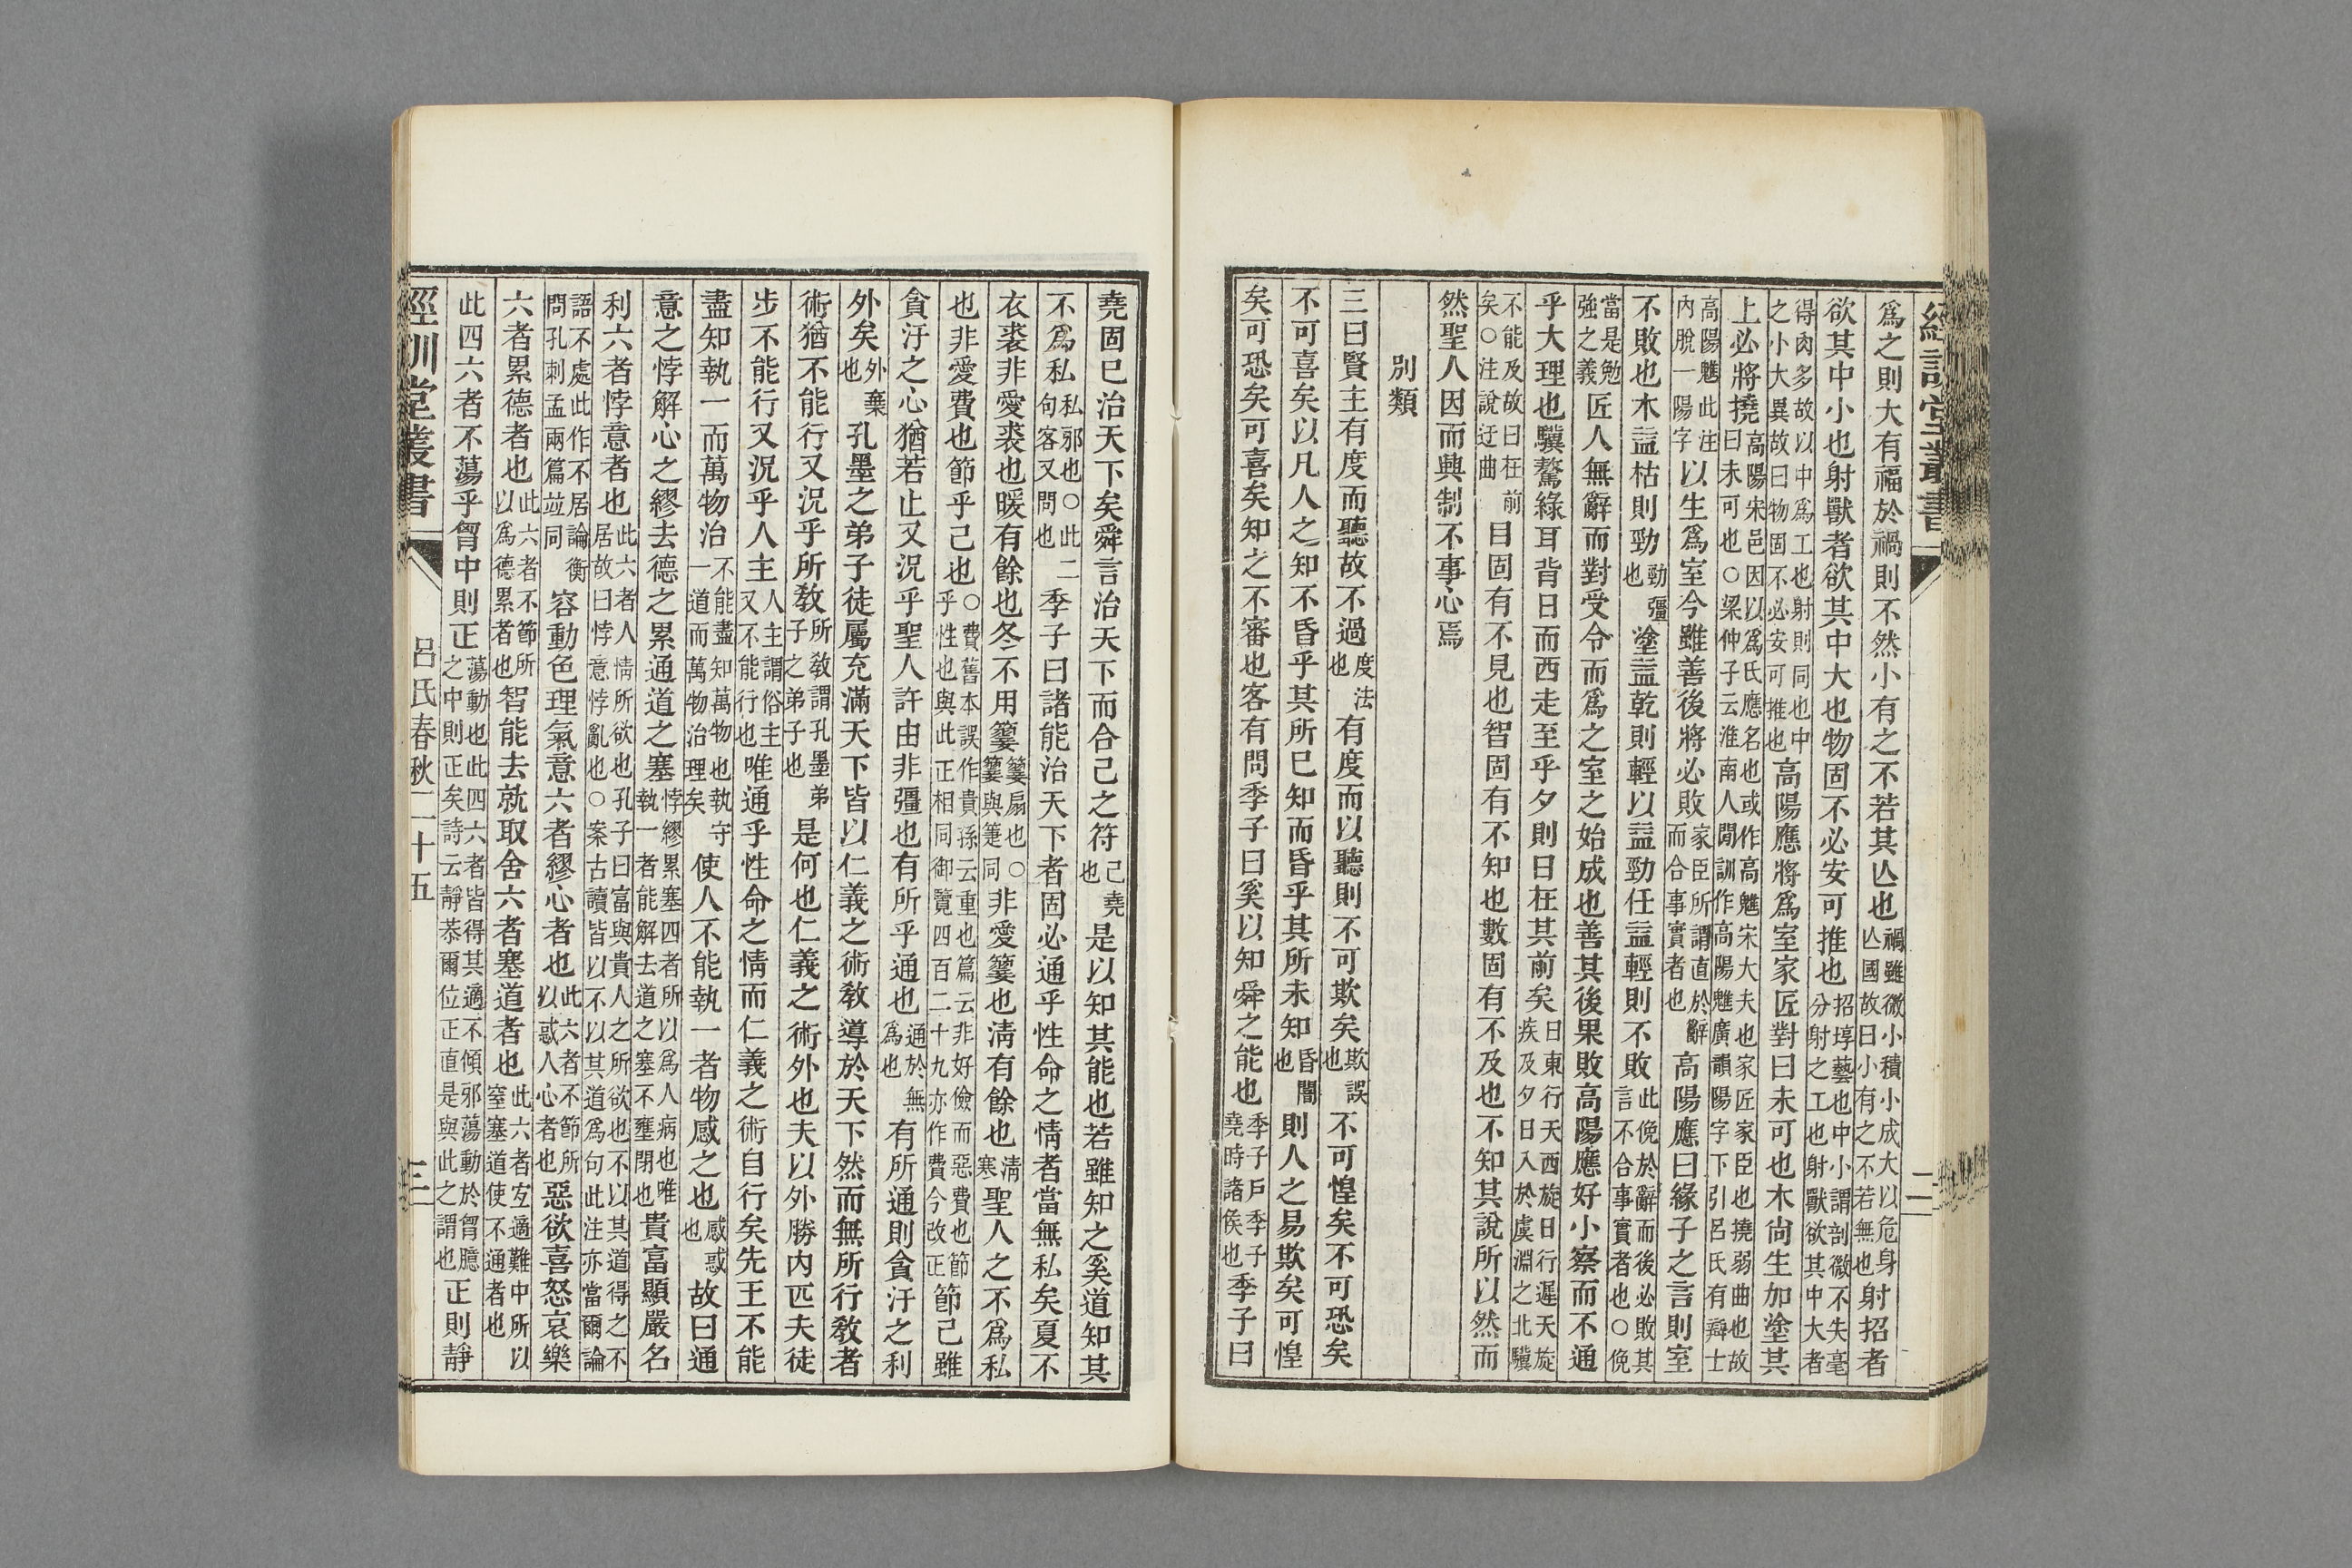 經訓堂叢書
二
爲之則大有福於禍則不然小有之不若其亾也禍雖微小積小成大以危身亾國故曰小有之不若無也射招者
欲其中小也射獸者欲其中大也物固不必安可推也招埻藝也中小謂剖微不失毫分射之工也射獸欲其中大者
得肉多故以中爲工也射則同也中之小大異故曰物固不必安可推也高陽應將爲室家匠對曰未可也木尙生加塗其
上必將撓高陽宋邑因以爲氏應名也或作高魋宋大夫也家匠家臣也撓弱曲也故曰未可也○梁仲子云淮南人閒訓作高陽魋廣韻陽字下引呂氏有辯士
高陽魋此注內脫一陽字以生爲室今雖善後將必敗家臣所謂直於辭而合事實者也高陽應曰緣子之言則室
不敗也木益枯則勁勁彊也塗益乾則輕以益勁任益輕則不敗此俛於辭而後必敗其言不合事實者也○俛
當是勉強之義匠人無辭而對受令而爲之室之始成也善其後果敗高陽應好小察而不通
乎大理也驥驁綠耳背日而西走至乎夕則日在其前矣日東行天西旋日行遲天旋疾及夕日入於虞淵之北驥
不能及故曰在前矣○注說迂曲目固有不見也智固有不知也數固有不及也不知其說所以然而
然聖人因而興制不事心焉
別類
三曰賢主有度而聽故不過度法也有度而以聽則不可欺矣欺誤也不可惶矣不可恐矣
不可喜矣以凡人之知不昏乎其所巳知而昏乎其所未知昏闇也則人之易欺矣可惶
矣可恐矣可喜矣知之不審也客有問季子曰奚以知舜之能也季子戶季子堯時諸侯也季子曰
堯固巳治天下矣舜言治天下而合己之符己堯也是以知其能也若雖知之奚道知其
不爲私私邪也○此句客又問也二季子曰諸能治天下者固必通乎性命之情者當無私矣夏不
衣裘非愛裘也暖有餘也冬不用箑箑扇也○箑與箑同非愛箑也清有餘也清寒聖人之不爲私
也非愛費也節乎己也○費舊本誤作貴孫云重也篇云非好儉而惡費也節乎性也與此正相同御覽四百二十九亦作費今改正節己雖
貪汙之心猶若止又況乎聖人許由非彊也有所乎通也通於無爲也有所通則貪汙之利
外矣外棄也孔墨之弟子徒屬充滿天下皆以仁義之術教導於天下然而無所行教者
術猶不能行又況乎所教所教謂孔墨弟子之弟子也是何也仁義之術外也夫以外勝內匹夫徒
步不能行又況乎人主人主謂俗主又不能行也唯通乎性命之情而仁義之術自行矣先王不能
盡知執一而萬物治不能盡知萬物也執守一道而萬物治理矣使人不能執一者物感之也感惑也故曰通
意之悖解心之繆去德之累通道之塞悖繆累塞四者所以爲人病也唯執一者能解去道之塞不壅閉也貴富顯嚴名
利六者悖意者也此六者人情所欲也孔子曰富與貴人之所欲也不以其道得之不居故曰悖意悖亂也○案古讀皆以不以其道爲句此注亦當爾論
語不處此作不居論衡問孔刺孟兩篇並同容動色理氣意六者繆心者也此六者不節所以惑人心者也惡欲喜怒哀樂
六者累德者也此六者不節所以爲德累者也智能去就取舍六者塞道者也此六者宜適難中所以窒塞道使不通者也
此四六者不蕩乎胷中則正蕩動也此四六者皆得其適不傾邪蕩動於胷臆之中則正矣詩云靜恭爾位正直是與此之謂也正則靜
經訓堂叢書
呂氏春秋二十五
三